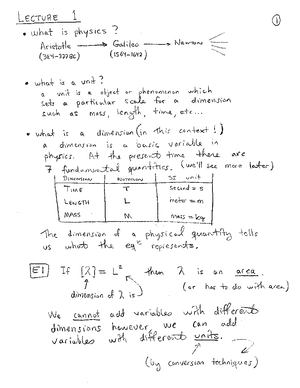 LECTURE 1
①
• what is physics?
Aristotle → Galileo → Newton
(384-322BC) (1564-1642)
• what is a unit?
a unit is a object or phenomenon which
sets a particular scale for a dimension
such as mass, length, time, etc...
• what is a dimension (in this context!)
a dimension is a basic variable in
physics. At the present time there are
7 fundamental quantities. (we'll see more later)
DIMENSION NOTATION SI UNIT
TIME T second = s
LENGTH L meter = m
MASS M mass = kg
The dimension of a physical quantity tells
us what the eqⁿ represents.
E1 If [λ] = L² then λ is an area.
dimension of λ is (or has to do with area)
We cannot add variables with different
dimensions however, we can add
variables with different units.
(by conversion techniques)